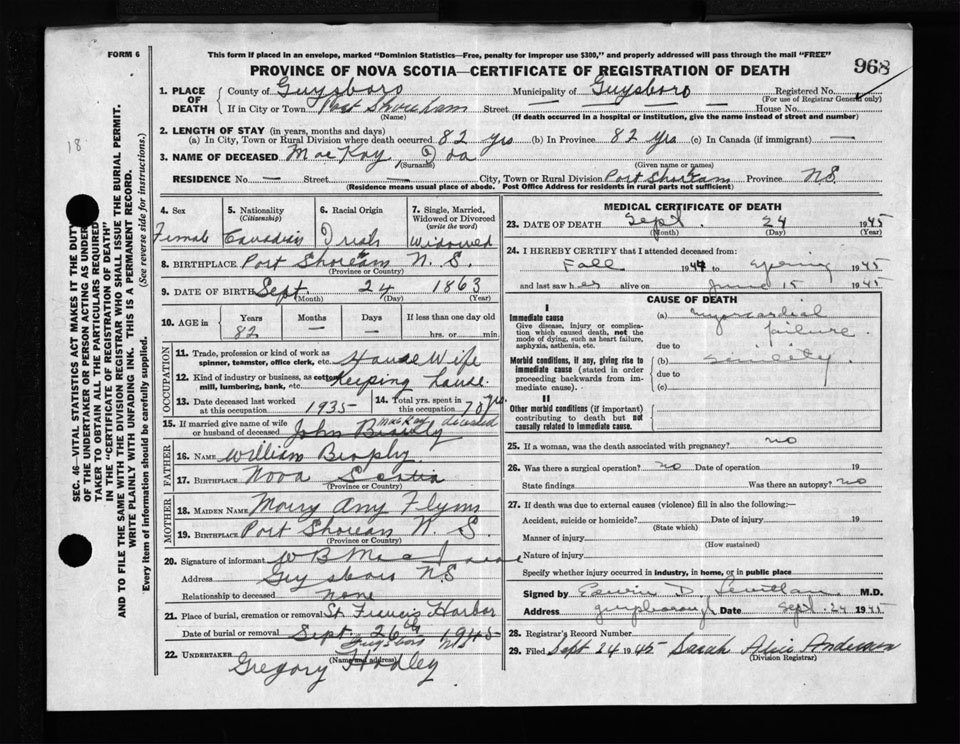 FORM 6
This form if placed in an envelope, marked "Dominion Statistics—Free, penalty for improper use $300," and properly addressed will pass through the mail "FREE"
PROVINCE OF NOVA SCOTIA—CERTIFICATE OF REGISTRATION OF DEATH
968
1. PLACE OF DEATH
County of Guysboro Municipality of Guysboro Registered No.
(For use of Registrar General only)
If in City or Town Port Shoreham Street — — — House No. —
(Name) (If death occurred in a hospital or institution, give the name instead of street and number)
2. LENGTH OF STAY (in years, months and days)
(a) In City, Town or Rural Division where death occurred 82 yrs (b) In Province 82 yrs (c) In Canada (if immigrant) —
3. NAME OF DECEASED MacKay, Ida
(Surname) (Given name or names)
RESIDENCE No. — Street — City, Town or Rural Division Port Shoream Province N.S.
(Residence means usual place of abode. Post Office Address for residents in rural parts not sufficient)
4. Sex Female
5. Nationality (Citizenship) Canadian
6. Racial Origin Irish
7. Single, Married, Widowed or Divorced (write the word) Widowed
8. BIRTHPLACE Port Shoream N.S.
(Province or Country)
9. DATE OF BIRTH Sept. 24 1863
(Month) (Day) (Year)
10. AGE in Years Months Days If less than one day old
82 — — hrs. or min.
OCCUPATION
11. Trade, profession or kind of work as spinner, teamster, office clerk, etc. House Wife
12. Kind of industry or business, as cotton mill, lumbering, bank, etc. Keeping house.
13. Date deceased last worked at this occupation 1935
14. Total yrs. spent in this occupation 70 yrs.
15. If married give name of wife or husband of deceased John MacKay deceased
FATHER
16. NAME William Brophy
17. BIRTHPLACE Nova Scotia
(Province or Country)
MOTHER
18. MAIDEN NAME Mary Amy Flynn
19. BIRTHPLACE Port Shoream N.S.
(Province or Country)
20. Signature of informant W B
Address Guysboro N.S
Relationship to deceased None
21. Place of burial, cremation or removal St. Francis Harbor
Date of burial or removal Sept 26th 1945
22. UNDERTAKER Gregory Hadley Guysboro N.S.
(Name and address)
MEDICAL CERTIFICATE OF DEATH
23. DATE OF DEATH Sept. 24 1945
(Month) (Day) (Year)
24. I HEREBY CERTIFY that I attended deceased from:
Fall 1944 to Spring 1945
and last saw her alive on June 15 1945
CAUSE OF DEATH
I
Immediate cause
Give disease, injury or complication which caused death, not the mode of dying, such as heart failure, asphyxia, asthenia, etc.
(a) myocardial failure
due to
Morbid conditions, if any, giving rise to immediate cause (stated in order proceeding backwards from immediate cause).
(b) senility.
due to
(c)
II
Other morbid conditions (if important) contributing to death but not causally related to immediate cause.
25. If a woman, was the death associated with pregnancy? no
26. Was there a surgical operation? no Date of operation 19
State findings Was there an autopsy? no
27. If death was due to external causes (violence) fill in also the following:—
Accident, suicide or homicide? Date of injury 19
(State which)
Manner of injury
(How sustained)
Nature of injury
Specify whether injury occurred in industry, in home, or in public place
Signed by Edwin D. M.D.
Address Date Sept. 24 1945
28. Registrar's Record Number
29. Filed Sept 24 1945 Sarah Alice Anderson
(Division Registrar)
18
SEC. 46—VITAL STATISTICS ACT MAKES IT THE DUTY
OF THE UNDERTAKER OR PERSON ACTING AS UNDERTAKER
TO OBTAIN ALL THE PARTICULARS REQUIRED
IN THE "CERTIFICATE OF REGISTRATION OF DEATH"
AND TO FILE THE SAME WITH THE DIVISION REGISTRAR WHO SHALL ISSUE THE BURIAL PERMIT.
WRITE PLAINLY WITH UNFADING INK. THIS IS A PERMANENT RECORD.
Every item of information should be carefully supplied. (See reverse side for instructions.)